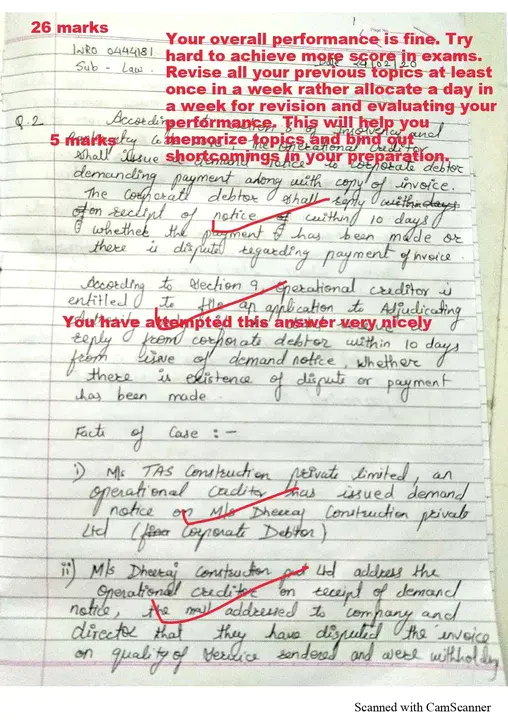 26 marks
Your overall performance is fine. Try
hard to achieve more score in exams.
Revise all your previous topics at least
once in a week rather allocate a day in
a week for revision and evaluating your
performance. This will help you
memorize topics and bind out
shortcomings in your preparation.
WRO 0444181
Sub - Law.
Q.2
5 marks
shall issue notice to corporate debtor
demanding payment along with copy of invoice.
The Corporate debtor shall reply within days
on receipt of notice within 10 days
whether the payment has been made or
there is dispute regarding payment of invoice.
According to Section 9, Operational creditor is
entitled to file an application to Adjudicating
You have attempted this answer very nicely
reply from corporate debtor within 10 days
from issue of demand notice whether
there is existence of dispute or payment
has been made
Facts of Case :-
i) M/s TAS Construction private limited, an
operational creditor has issued demand
notice on M/s Dheeraj Construction private
Ltd (Corporate Debtor)
ii) M/s Dheeraj Construction Ltd address the
Operational creditor on receipt of demand
notice, the mail addressed to company and
director that they have disputed the invoice
on quality of service rendered and were withholding
Scanned with CamScanner